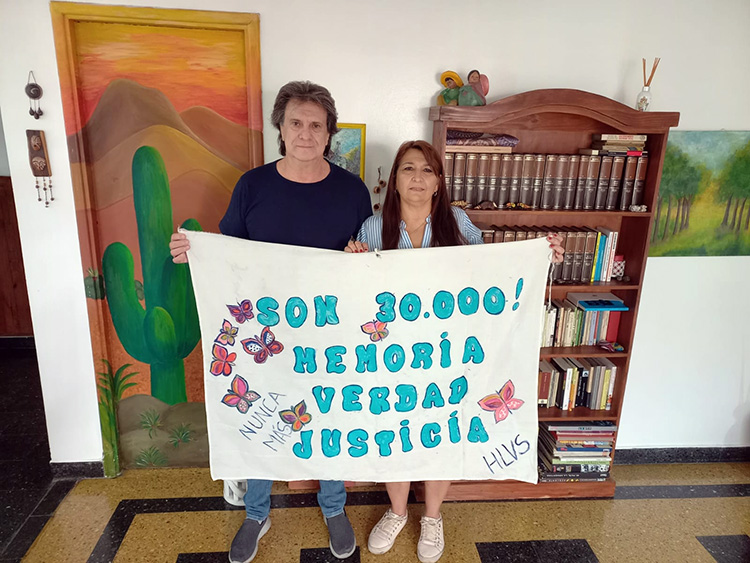 SON 30.000!
MEMORIA
VERDAD
JUSTICIA
NUNCA
MAS
HLVS